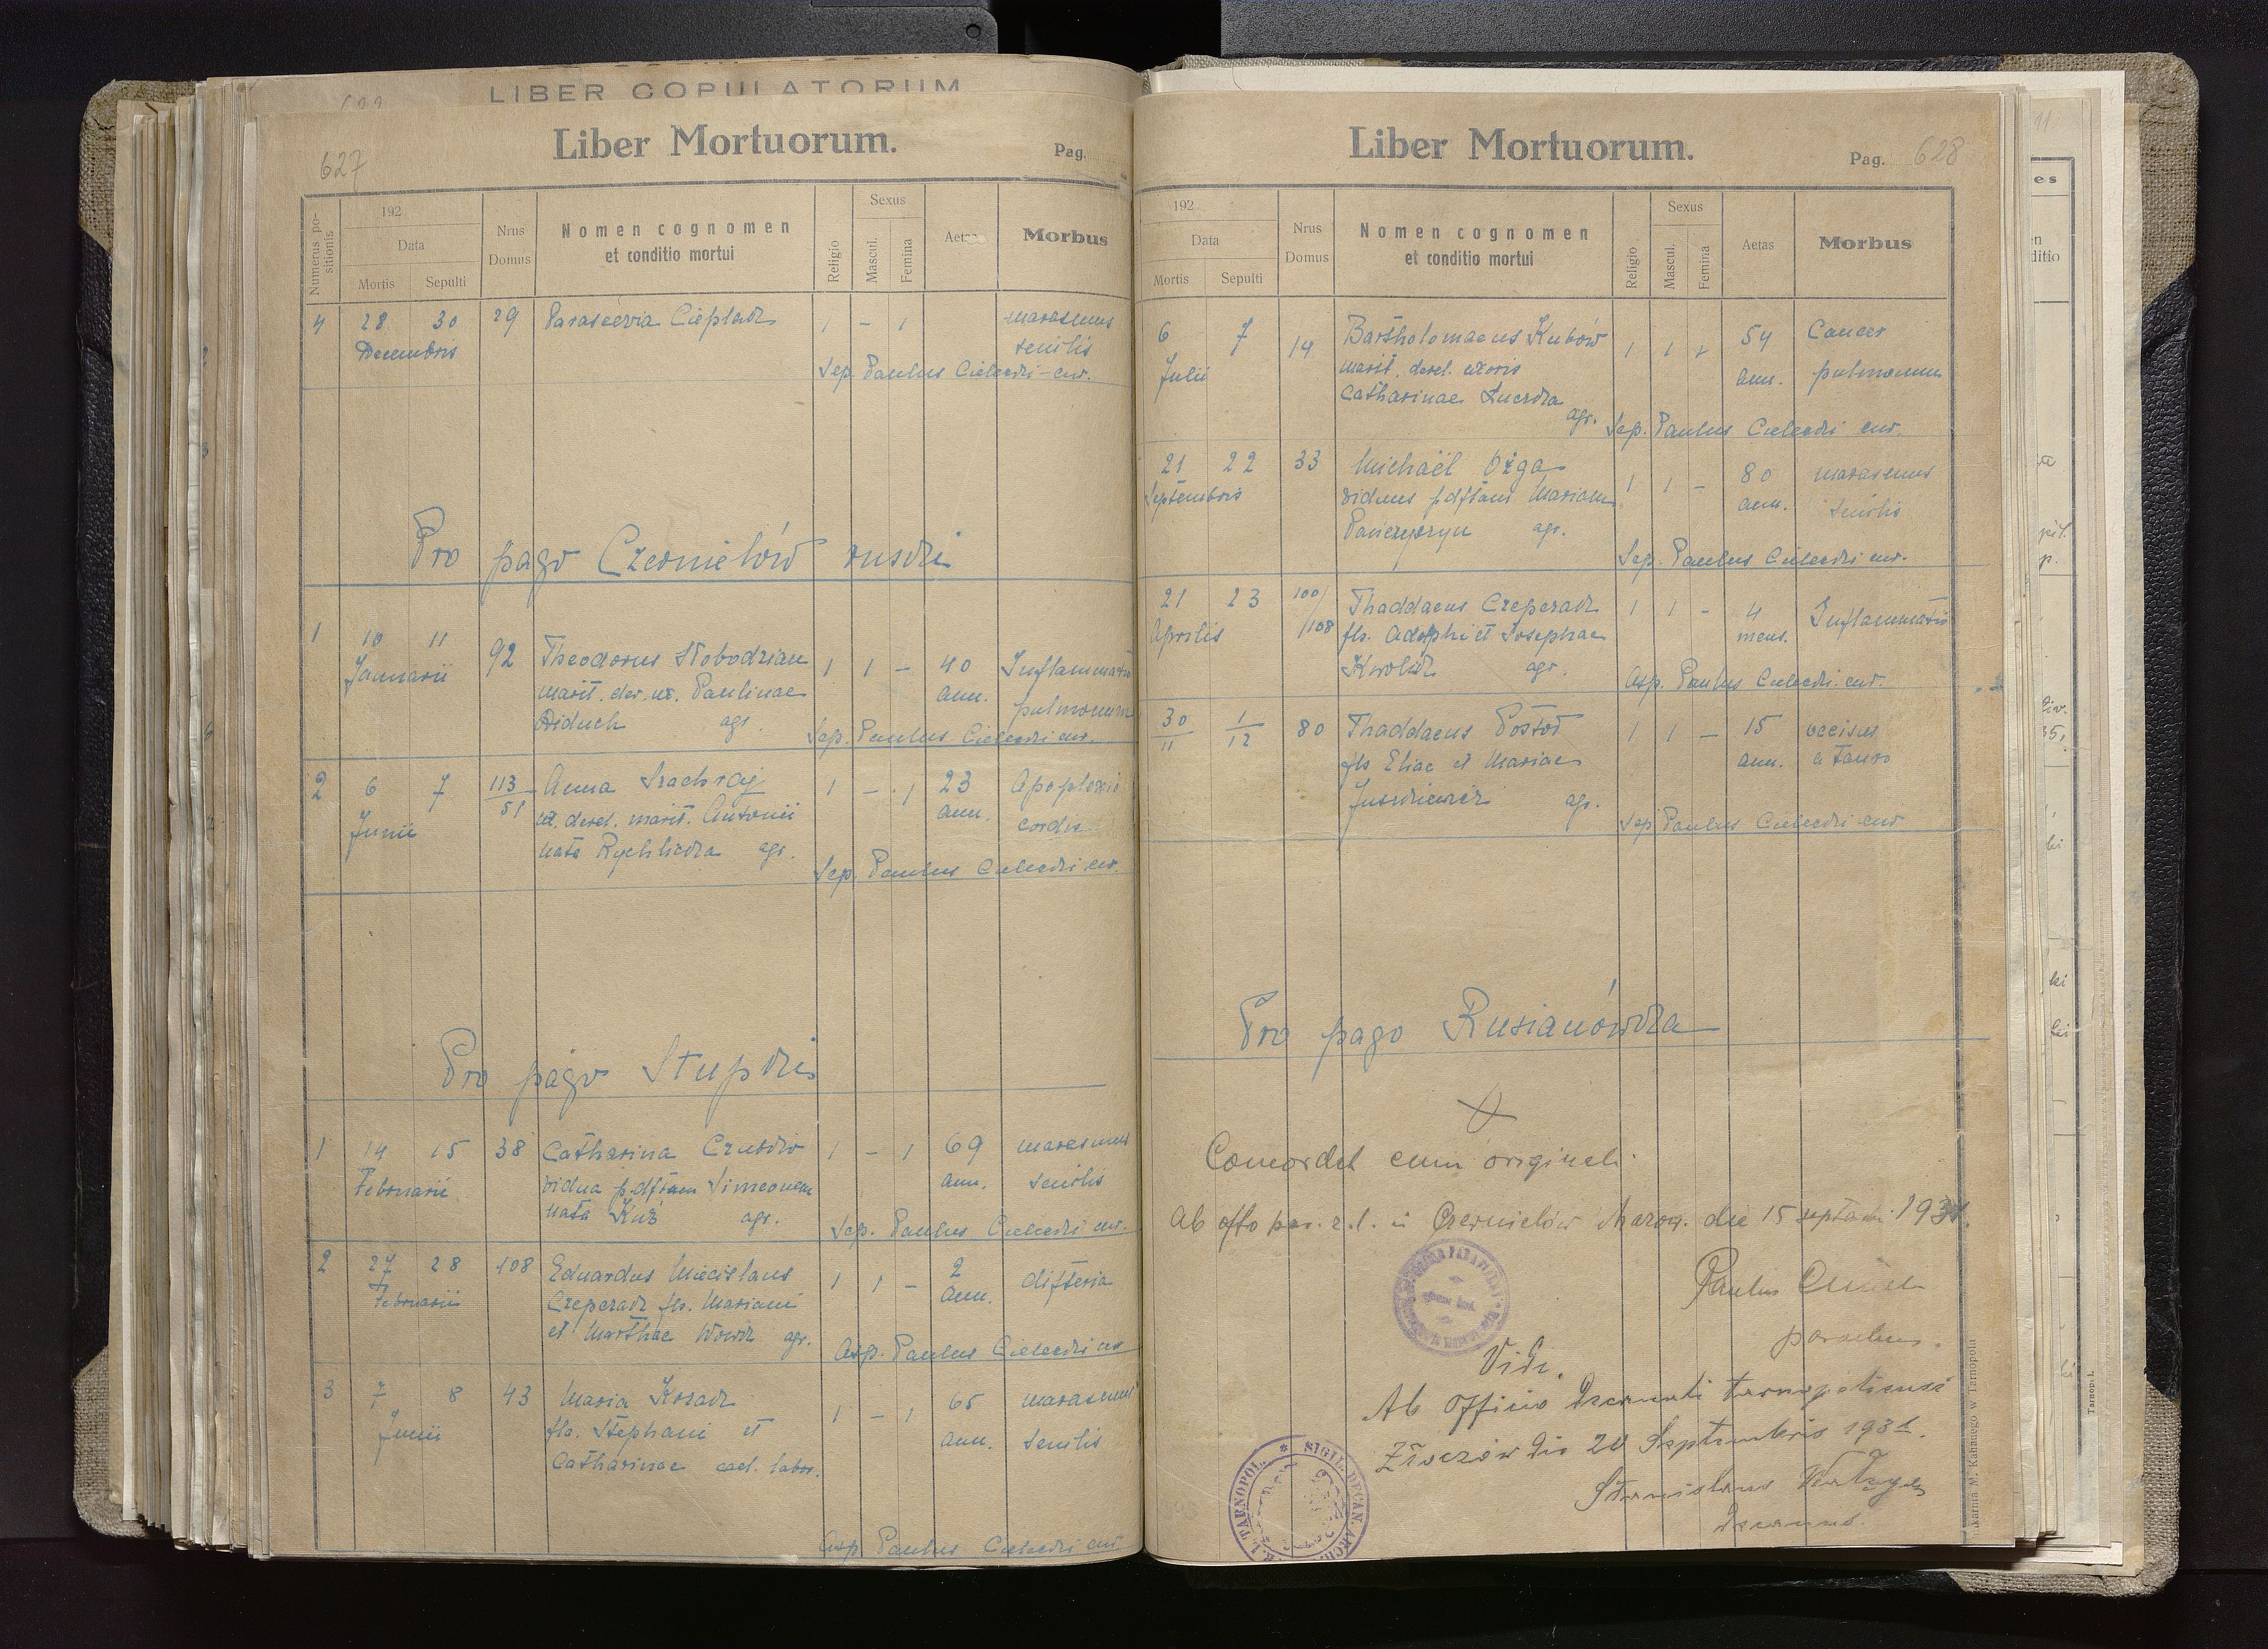 LIBER COPULATORUM
Liber Mortuorum.
627
Pag.
Numerus po-
sitionis
192
Data
Mortis
Sepulti
Nrus
Domus
Nomen cognomen
et conditio mortui
Religio
Sexus
Mascul.
Femina
Aetas
Morbus
4 28 30 29 Parascevia Cieplak 1 - 1 marasmus
Decembris senilis
Sep. Paulus Cielecki cur.
Pro pago Czernielów ruski
1 10 11 92 Theodorus Słobodzian 1 1 - 40 Inflammatio
Januarii marit. der. ux. Paulinae ann. pulmonum
Diduch agr.
Sep. Paulus Cielecki cur.
2 6 7 113/51 Anna Strachraj 1 - 1 23 Apoplexio
Junii ux. derel. marit. Antonii ann. cordis
nata Rychlicka agr.
Sep. Paulus Cielecki cur.
Pro pago Stupki
1 14 15 38 Catharina Czusko 1 - 1 69 marasmus
Februarii vidua p. dftam Simeonem ann. senilis
nata Kuź agr.
Sep. Paulus Cielecki cur.
2 27 28 108 Eduardus Miecislaus 1 1 - 2 difteria
Februarii Czeperak fls. Mariani ann.
et Marthae Wowk agr.
Asp. Paulus Cielecki cur
3 7 8 43 Maria Kozak 1 - 1 65 marasmus
Junii fla. Stephani et ann. senilis
Catharinae cael. labor.
Asp Paulus Cielecki cur.
Liber Mortuorum.
Pag. 628
192
Data
Mortis
Sepulti
Nrus
Domus
Nomen cognomen
et conditio mortui
Religio
Sexus
Mascul.
Femina
Aetas
Morbus
6 7 14 Bartholomaeus Kubów 1 1 - 54 Cancer
Julii marit. derel. uxoris ann. pulmonum
Catharinae
agr.
Sep. Paulus Cielecki cur.
21 22 33 Michaël Ożga 1 1 - 80 marasmus
Septembris viduus p dftam Mariam ann. senilis
Panczyszyn agr.
Sep. Paulus Cielecki cur.
21 23 100/108 Thaddaeus Czeperak 1 1 - 4 Inflammatio
Aprilis fls. Adolphi et Josephae mens.
Krolik agr.
Asp. Paulus Cielecki cur.
30/11 1/12 80 Thaddaeus Postoł 1 1 - 15 occisus
fls Eliae et Mariae ann. a tauro
Juskiewicz agr.
Sep Paulus Cielecki cur
Pro pago Rusianówka
Concordat cum originali.
Ab offo par. r. l. in Czernielów Mazow. die 15 septem. 1931.
Paulus
parochus.
Vidi.
Ab Officio Decanali tarnopoliensi
Złoczów die 20 Septembris 1931.
Stanislaus
Decanus.
SIGIL. DECAN. ARCH. R. L. TARNOPOL.
karnia M. Kahanego w Tarnopolu
Tarnopol.